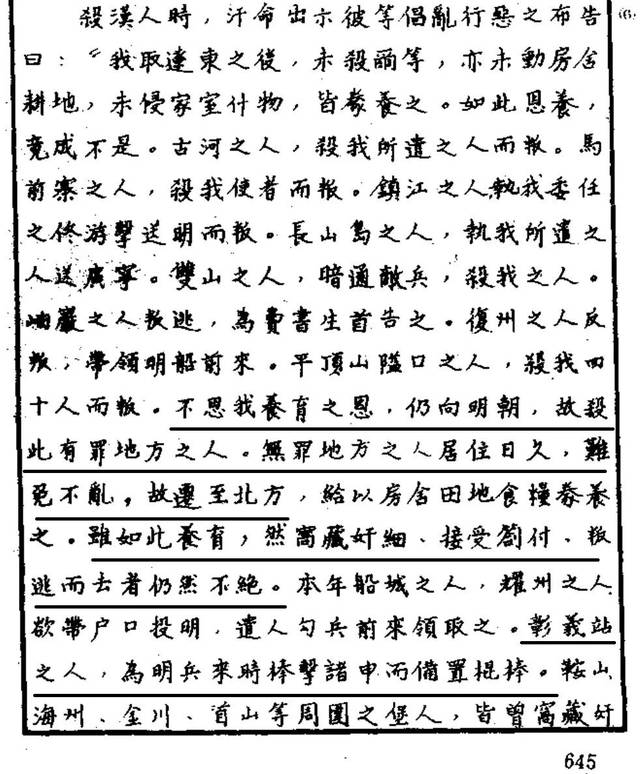 殺漢人時，汗命出示彼等倡亂行惡之布告
曰："我取遼東之後，未殺爾等，亦未動房舍
耕地，未侵家室什物，皆豢養之。如此恩養，
竟成不是。古河之人，殺我所遣之人而叛。馬
前寨之人，殺我使者而叛。鎮江之人執我委任
之佟游擊送明而叛。長山島之人，執我所遣之
人送廣寧。雙山之人，暗通敵兵，殺我之人。
岫巖之人叛逃，為費書生首告之。復州之人反
叛，帶領明船前來。平頂山隘口之人，殺我四
十人而叛。不思我養育之恩，仍向明朝，故殺
此有罪地方之人。無罪地方之人居住日久，難
免不亂，故遷至北方，給以房舍田地食糧豢養
之。雖如此養育，然窩藏奸細、接受劄付、叛
逃而去者仍然不絕。本年船城之人，耀州之人
欲帶户口投明，遣人勾兵前來領取之。彰義站
之人，為明兵來時棒擊諸申而備置棍棒。鞍山
海州、金川、首山等周圍之堡人，皆曾窩藏奸
645